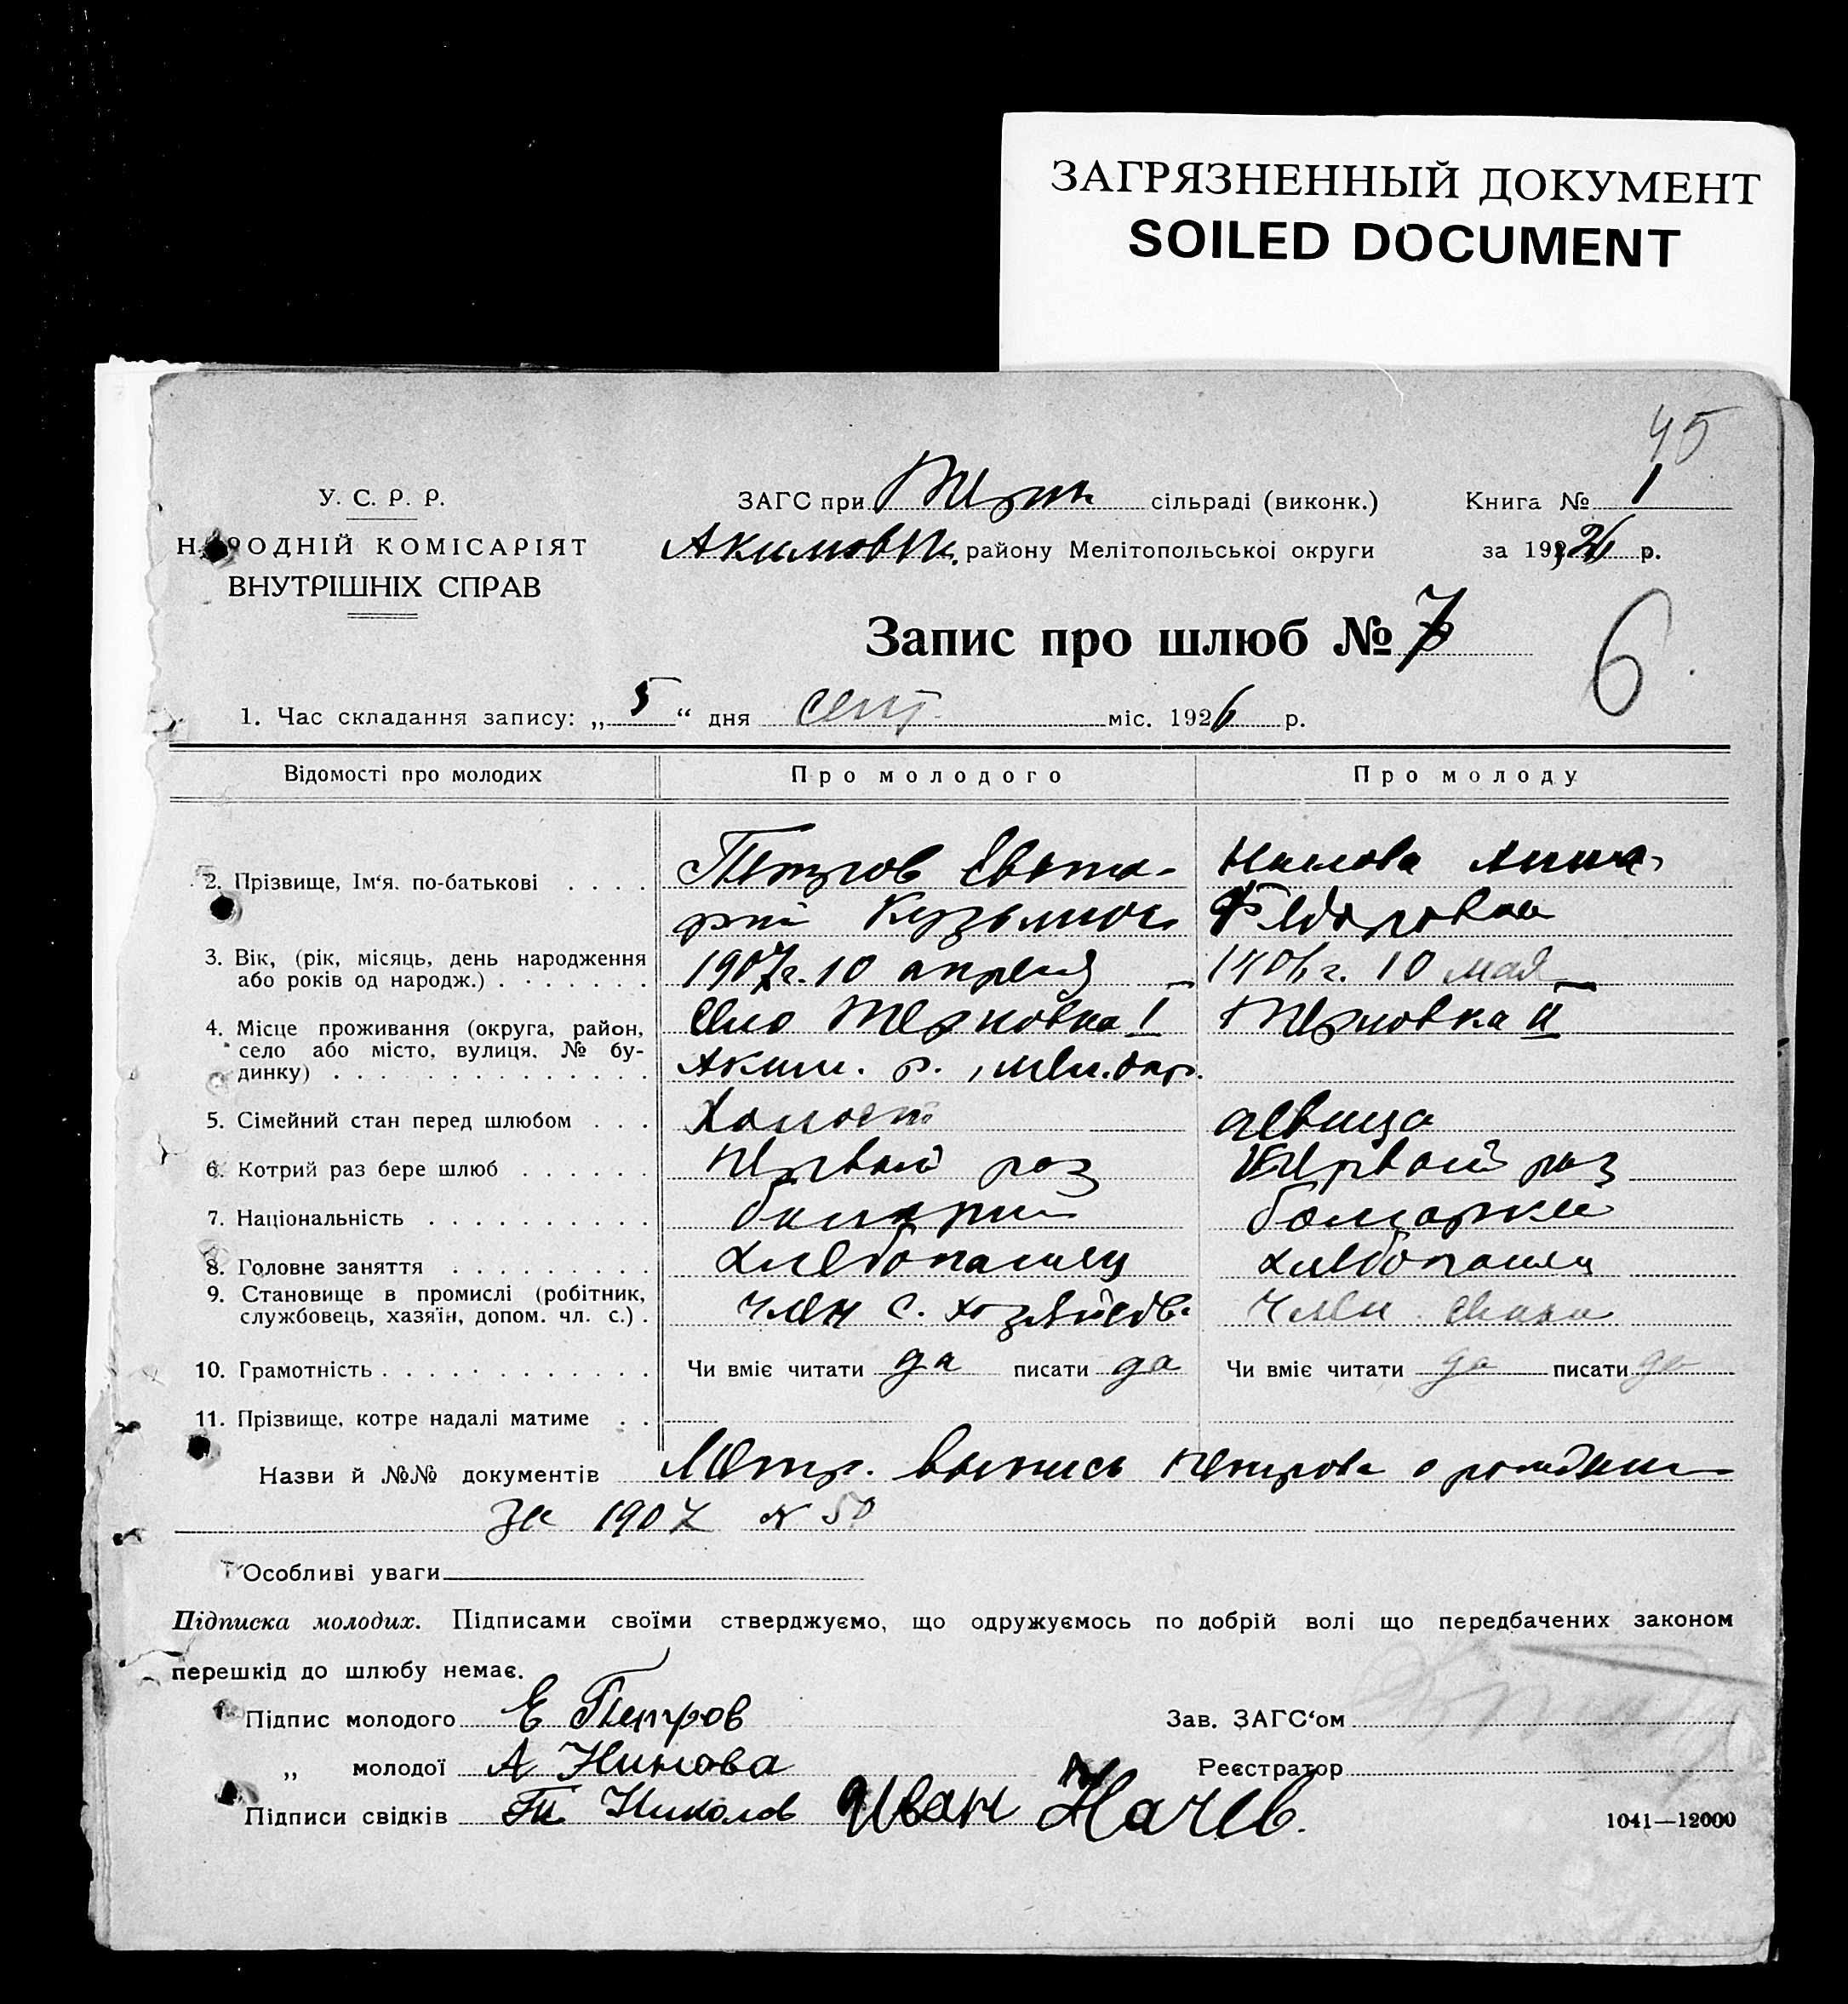 ЗАГРЯЗНЕННЫЙ ДОКУМЕНТ
SOILED DOCUMENT
45
У. С. Р. Р.
НАРОДНІЙ КОМІСАРІЯТ
ВНУТРІШНІХ СПРАВ
ЗАГС при Терн сільраді (виконк.) Книга № 1
Акимовск. району Мелітопольської округи за 1926 р.
Запис про шлюб № 7
6
1. Час складання запису: „ 5 “ дня сент. міс. 1926 р.
Відомості про молодих Про молодого Про молоду
2. Прізвище, Ім‘я. по-батькові
Петров Евста-
рий Кузьмич
Анна
Федоровна
3. Вік, (рік, місяць, день народження
або років од народж.)
1907 г. 10 апреля
г. 10 мая
4. Місце проживання (округа, район,
село або місто, вулиця, № бу-
динку)
Село Терновка I
Аким. р., мел. окр.
Терновка II
5. Сімейний стан перед шлюбом Холост девица
6. Котрий раз бере шлюб первый раз Первый раз
7. Національність болгарин болгарка
8. Головне заняття хлебопашец хлебопашец
9. Становище в промислі (робітник,
службовець, хазяїн, допом. чл. с.)
член с. хозяйств
член
10. Грамотність Чи вміє читати да писати да Чи вміє читати да писати да
11. Прізвище, котре надалі матиме
Назви й №№ документів Метр. выпись Петрова о рождении
за 1907 № 50
Особливі уваги
Підписка молодих. Підписами своїми стверджуємо, що одружуємось по добрій волі що передбачених законом
перешкід до шлюбу немає.
Підпис молодого Е Петров Зав. ЗАГС‘ом
„ молодої А Реєстратор
Підписи свідків Николов Иван Начев.
1041—12000